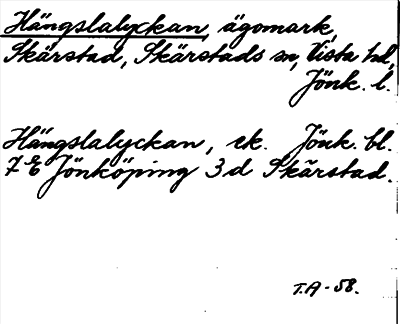 Hängslalyckan, ägomark,
Skärstad, Skärstads sn, Vista hd,
Jönk. l.
Hängslalyckan, ek. Jönk. bl.
7 E Jönköping 3d Skärstad.
T.A-58.